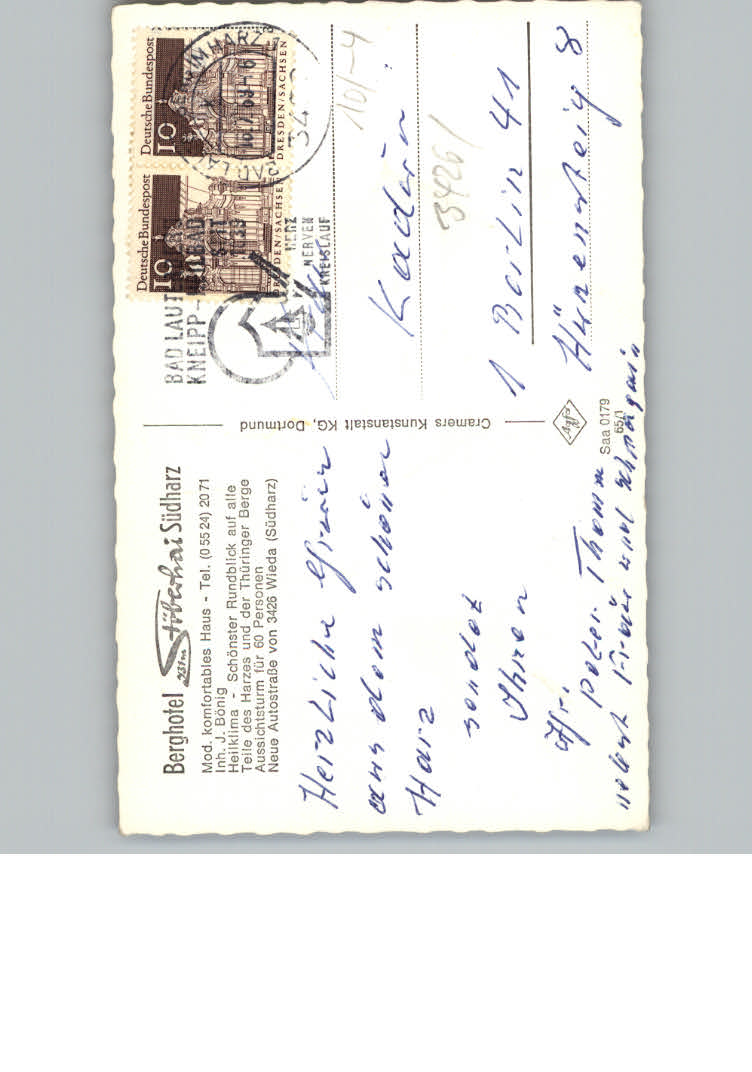 Berghotel Stöberhai Südharz
Mod. komfortables Haus - Tel. (0 55 24) 20 71
Inh. J. Bönig
Heilklima - Schönster Rundblick auf alle
Teile des Harzes und der Thüringer Berge
Aussichtsturm für 60 Personen
Neue Autostraße von 3426 Wieda (Südharz)
Herzliche Grüße
aus dem schönen
Harz
sendet
Ihnen
Ihr
Peter Thomm
nebst Frau und
Cramers Kunstanstalt KG, Dortmund
Agfa
Saa 0179
65/1
Deutsche Bundespost
10
DRESDEN/SACHSEN
Deutsche Bundespost
10
DRESDEN/SACHSEN
IM HARZ
BAD LAUT
KNEIPP-
HERZ
NERVEN
KREISLAUF
1 Berlin 41
8
3426/
10/-4